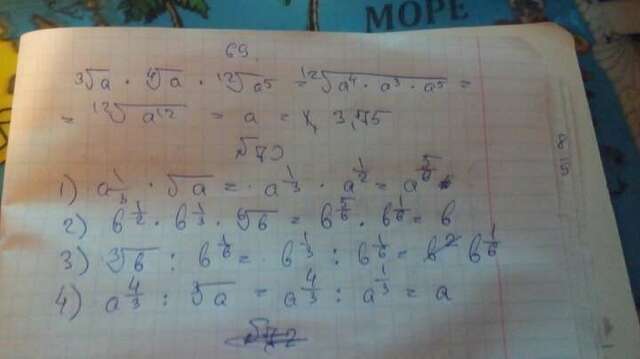 МОРЕ
69.
∛a · ∜a · ¹²√a⁵ = ¹²√(a⁴ · a³ · a⁵) =
= ¹²√a¹² = a = 3,75
№70
1) a^(1/3) · √a = a^(1/3) · a^(1/2) = a^(5/6)
2) b^(1/2) · b^(1/3) · ⁶√b = b^(5/6) · b^(1/6) = b
3) ∛b : b^(1/6) = b^(1/3) : b^(1/6) = b^(1/6)
4) a^(4/3) : ∛a = a^(4/3) : a^(1/3) = a